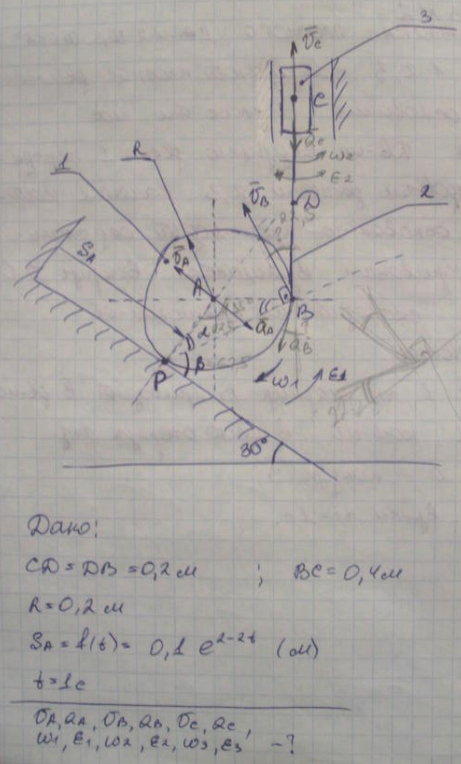 3
V̄c
C
āc
ω2
ε2
1
R
V̄B
D
2
SA
V̄A
A
āA
B
āB
α
β
P
ω1
ε1
30°
Дако:
CD = DB = 0,2 м ; BC = 0,4 м
R = 0,2 м
SA = f(t) = 0,1 e^2-2t (м)
t = 1c
VA, aA, VB, aB, Vc, ac,
ω1, ε1, ω2, ε2, ω3, ε3 - ?